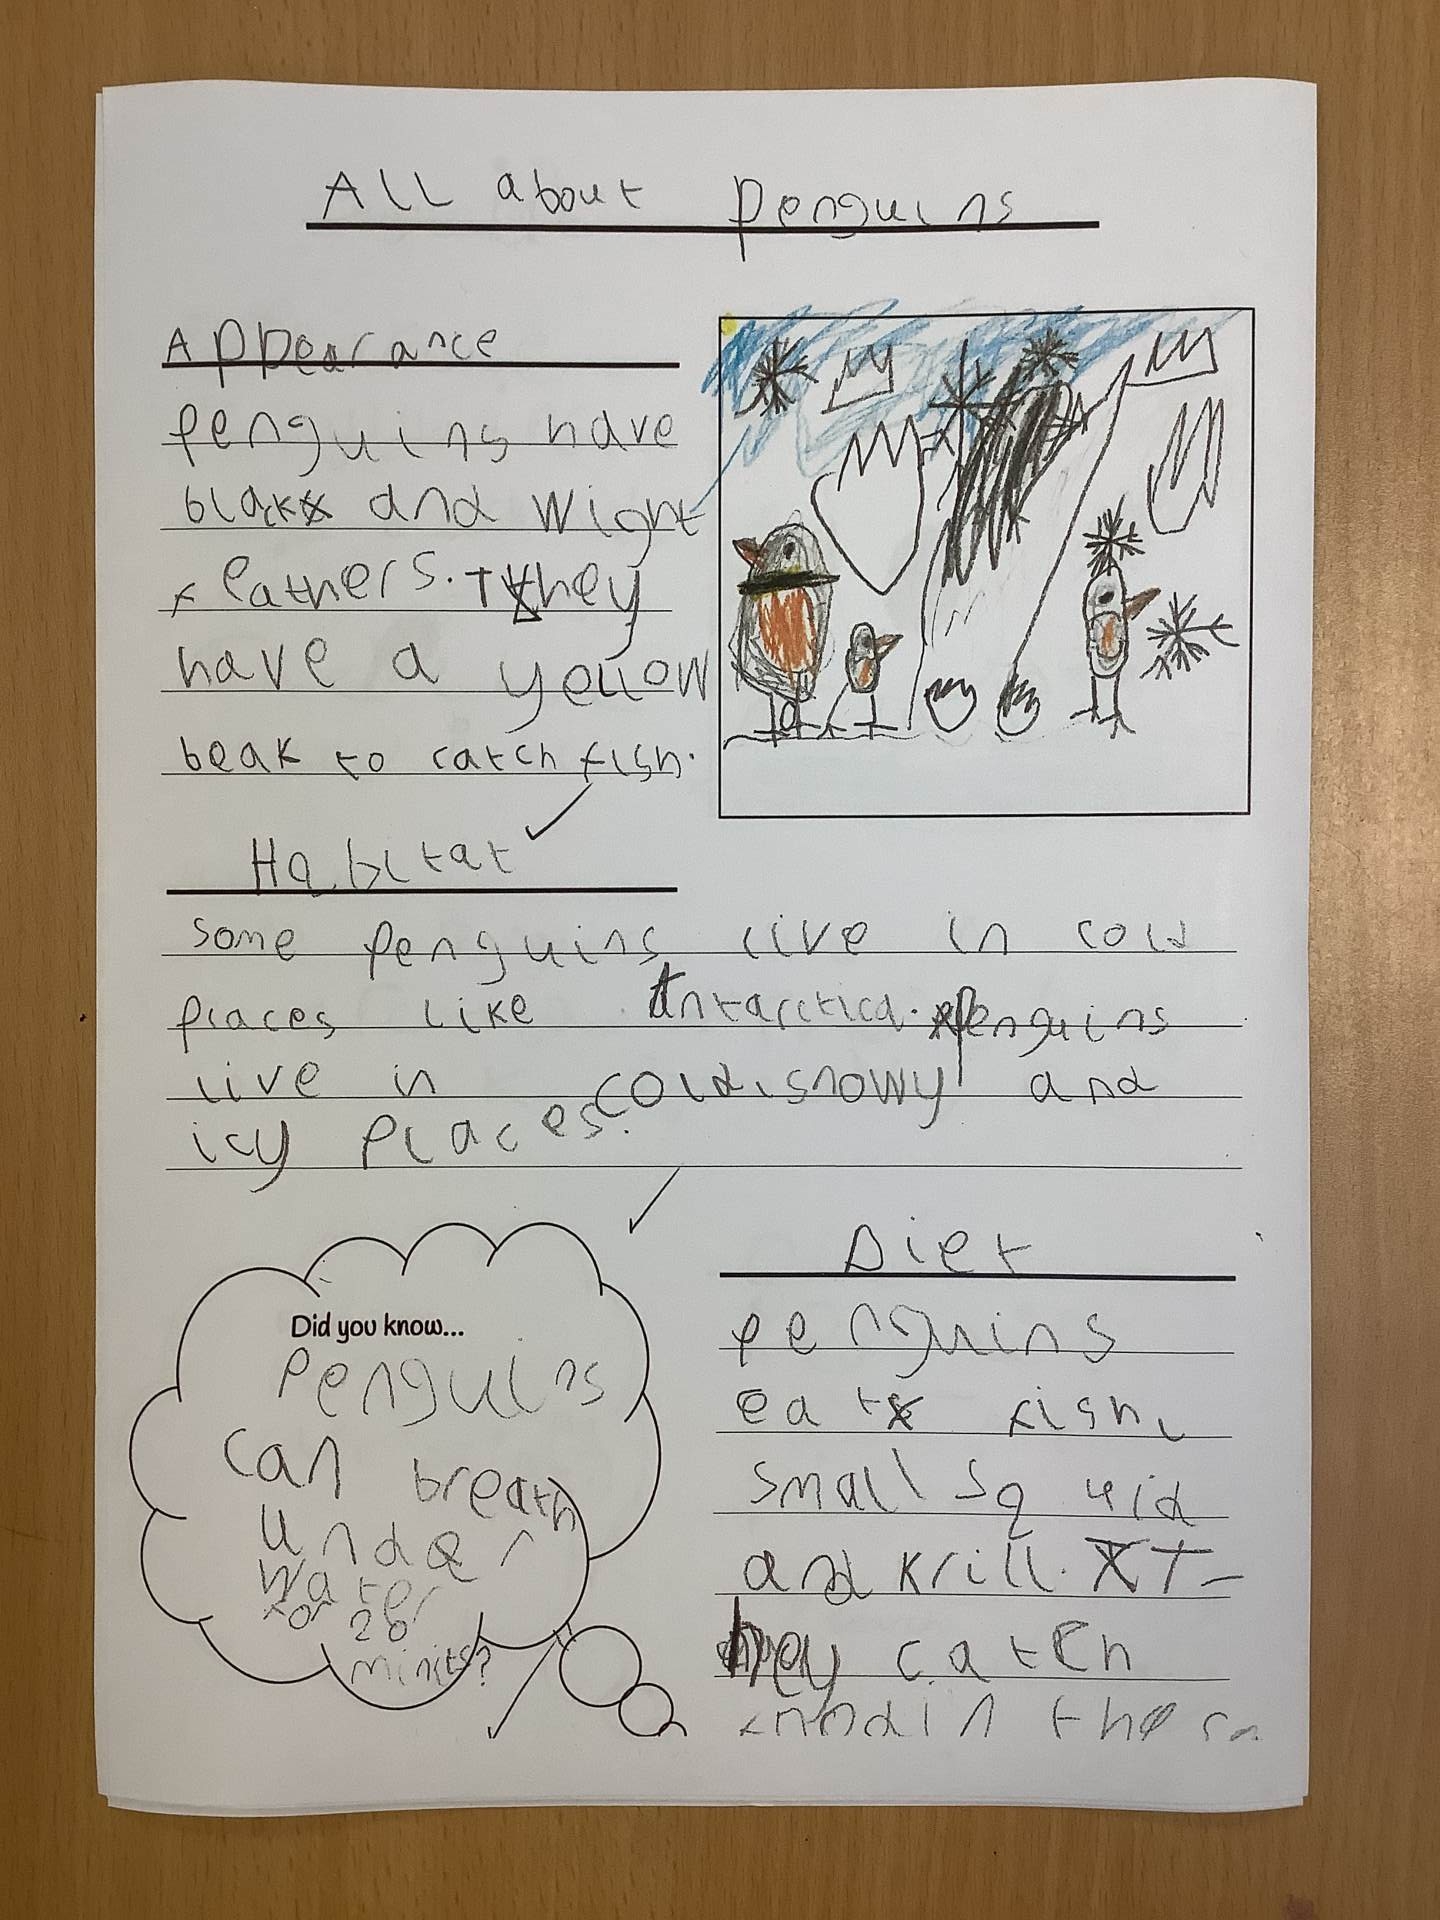 All about penguins
Appearance
penguins have
black and Wight
feathers. They
have a yellow
beak to catch fish.
Habitat
some penguins live in cold
places like Antarctica. Penguins
live in cold, snowy and
icy places.
Did you know...
Penguins
can breath
under
water
for 20
minits?
Diet
penguins
eat fish,
small squid
and krill. T-
hey catch
in the